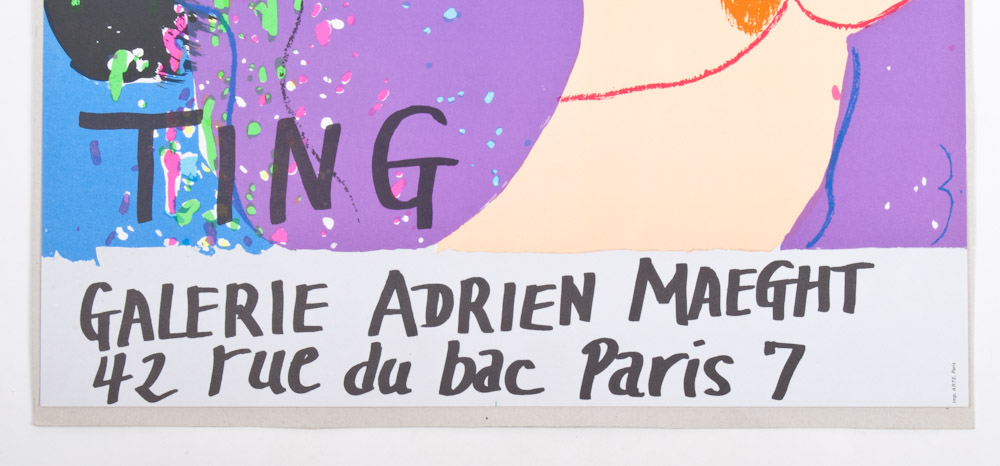 TING
GALERIE ADRIEN MAEGHT
42 rue du bac Paris 7
Imp. ARTE. Paris